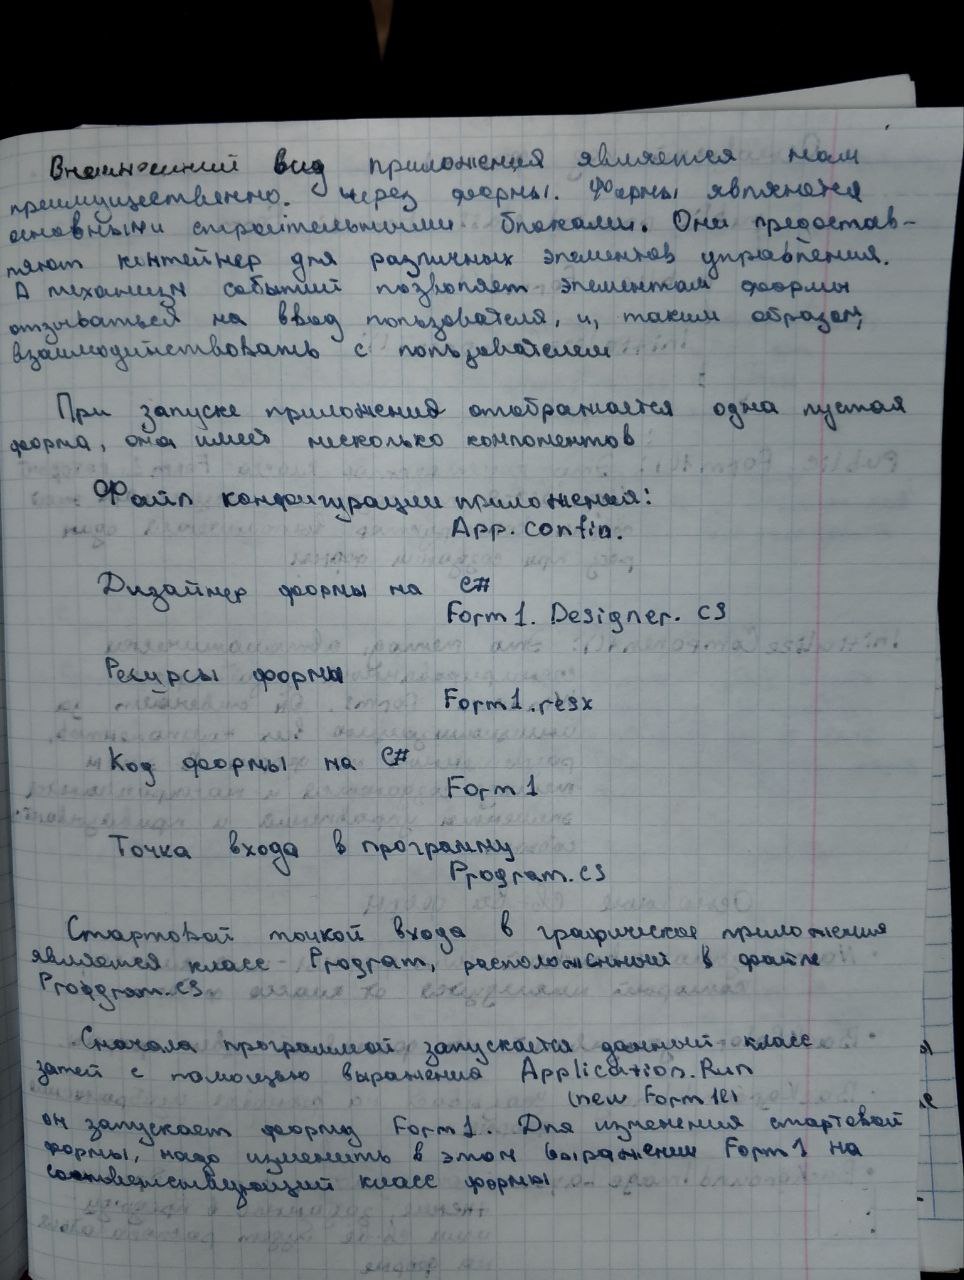 Внешний вид приложения является нам
преимущественно. через формы. Формы являются
основными строительными блоками. Они предостав-
ляют контейнер для различных элементов управления.
А механизм событий позволяет элементам формы
отзываться на ввод пользователя, и, таким образом,
взаимодействовать с пользователем
При запуске приложения отображается одна пустая
форма, она имеет несколько компонентов
Файл конфигурации приложения:
App.config.
Дизайнер формы на C#
Form1. Designer. cs
Ресурсы формы
Form1.resx
Код формы на C#
Form1
Точка входа в программу
Program.cs
Стартовой точкой входа в графическое приложения
является класс Program, расположенный в файле
Program.cs
Сначала программой запускается данный класс
затем с помощью выражения Application.Run
(new Form1())
он запускает форму Form1. Для изменения стартовой
формы, надо изменить в этом выражении Form1 на
соответствующий класс формы